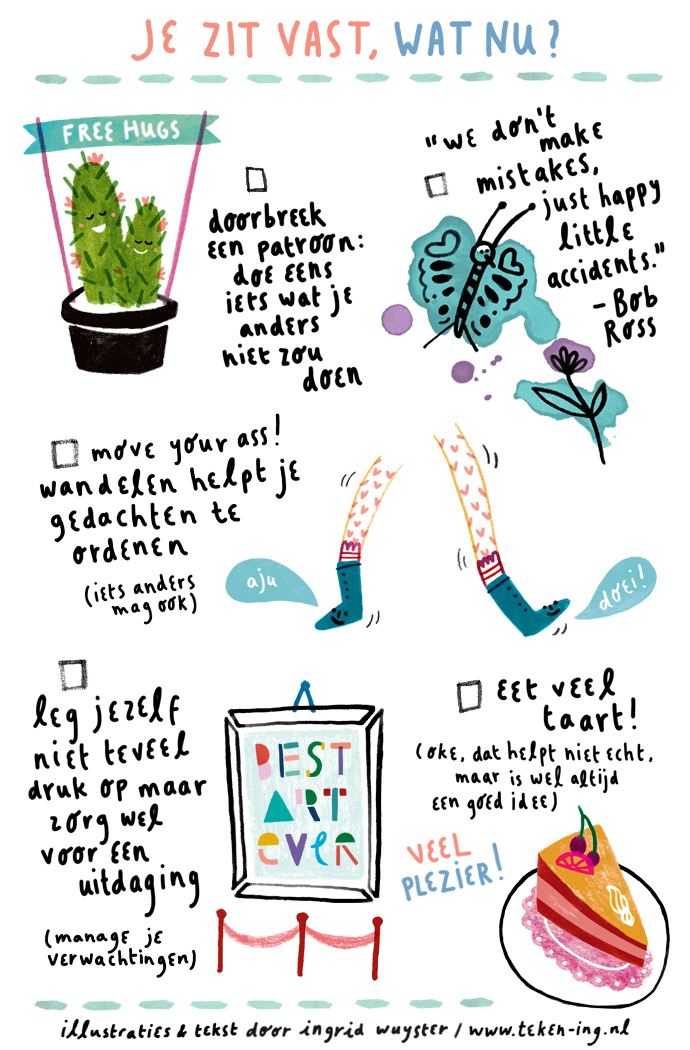 JE ZIT VAST, WAT NU?
FREE HUGS
doorbreek
een patroon:
doe eens
iets wat je
anders
niet zou
doen
"we don't
make
mistakes,
just happy
little
accidents."
- Bob
Ross
move your ass!
wandelen helpt je
gedachten te
ordenen
(iets anders
mag ook)
aju
doei!
leg jezelf
niet teveel
druk op maar
zorg wel
voor een
uitdaging
(manage je
verwachtingen)
BEST
ART
EVER
eet veel
taart!
(oke, dat helpt niet echt,
maar is wel altijd
een goed idee)
VEEL
PLEZIER!
illustraties & tekst door ingrid wuyster / www.teken-ing.nl